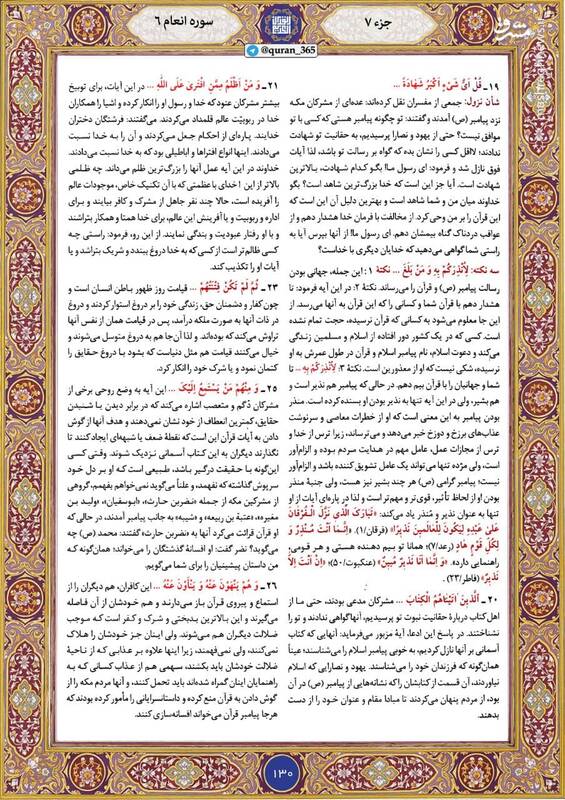 جزء ۷
سوره انعام ۶
@quran_365
مشرق
۱۹ـ قُلْ أَیُّ شَیْءٍ أَکْبَرُ شَهَادَةً ...
شأن نزول: جمعی از مفسران نقل کرده‌اند: عده‌ای از مشرکان مکه
نزد پیامبر (ص) آمدند و گفتند: تو چگونه پیامبر هستی که کسی با تو
موافق نیست؟ حتی از یهود و نصارا پرسیدیم، به حقانیت تو شهادت
ندادند؛ لااقل کسی را نشان بده که گواه بر رسالت تو باشد، لذا آیات
فوق نازل شد و فرمود: ای رسول ما! بگو کدام شهادت، بالاترین
شهادت است. آیا جز این است که خدا بزرگ‌ترین شاهد است؟ بگو
خداوند میان من و شما شاهد است و بهترین دلیل آن این است که
این قرآن را بر من وحی کرد. از مخالفت با فرمان خدا هشدار دهم و از
عواقب دردناک گناه بیمشان دهم. ای رسول ما! از آنها بپرس آیا به
راستی شما گواهی می‌دهید که خدایان دیگری با خداست؟
سه نکته: لِأُنْذِرَکُمْ بِهِ وَ مَنْ بَلَغَ ... نکتهٔ ۱: این جمله، جهانی بودن
رسالت پیامبر (ص) و قرآن را می‌رساند. نکتهٔ ۲: در این آیه فرمود: تا
هشدار دهم با قرآن شما و کسانی را که این قرآن به آنها می‌رسد. از
این جا معلوم می‌شود به کسانی که قرآن نرسیده، حجت تمام نشده
است. کسی که در یک کشور دور افتاده از اسلام و مسلمین زندگی
می‌کند و دعوت اسلام، نام پیامبر اسلام و قرآن در طول عمرش به او
نرسیده، شکی نیست که او از معذورین است. نکتهٔ ۳: لِأُنْذِرَکُمْ بِهِ ... تا
شما و جهانیان را با قرآن بیم دهم. در حالی که پیامبر هم نذیر است و
هم بشیر، ولی در این آیه تنها به نذیر بودن او بسنده کرده است. منذر
بودن پیامبر به این معنی است که او از خطرات معاصی و سرنوشت
عذاب‌های برزخ و دوزخ خبر می‌دهد و می‌ترساند، زیرا ترس از خدا و
ترس از مجازات عمل، عامل مهم در هدایت مردم بوده و الزام‌آور
است، ولی مژده تنها می‌تواند یک عامل تشویق کننده باشد و الزام‌آور
نیست؛ پیامبر گرامی (ص) هر چند بشیر نیز هست، ولی جنبهٔ منذر
بودن او از لحاظ تأثیر، قوی‌تر و مهم‌تر است و لذا در پاره‌ای آیات از او
تنها به عنوان نذیر و مُنذر یاد می‌کند: «تَبَارَکَ الَّذِی نَزَّلَ الْفُرْقَانَ
عَلَی عَبْدِهِ لِیَکُونَ لِلْعَالَمِینَ نَذِیرًا» (فرقان/۱). «إِنَّمَا أَنْتَ مُنْذِرٌ وَ
لِکُلِّ قَوْمٍ هَادٍ» (رعد/۷)؛ همانا تو بیم دهنده هستی و هر قومی،
راهنمایی دارد. «وَ إِنَّمَا أَنَا نَذِیرٌ مُبِینٌ» (عنکبوت/۵۰) «إِنْ أَنْتَ إِلَّا
نَذِیرٌ» (فاطر/۲۳).
۲۰ـ الَّذِینَ آتَیْنَاهُمُ الْکِتَابَ ... مشرکان مدعی بودند، حتی ما از
اهل کتاب دربارهٔ حقانیت نبوت تو پرسیدیم، آنها گواهی ندادند و تو را
نشناختند. در پاسخ این ادعا، آیهٔ مزبور می‌فرماید: آنهایی که کتاب
آسمانی بر آنها نازل کردیم، به خوبی پیامبر اسلام را می‌شناسند؛ عیناً
همان‌گونه که فرزندان خود را می‌شناسند. یهود و نصارایی که اسلام
نیاوردند، آن قسمت از کتابشان را که نشانه‌هایی از پیامبر (ص) در آن
بود، از مردم پنهان می‌کردند تا مبادا مقام و عنوان خود را از دست
بدهند.
۲۱ـ وَ مَنْ أَظْلَمُ مِمَّنِ افْتَرَی عَلَی اللهِ ... در این آیات، برای توبیخ
بیشتر مشرکان عنود که خدا و رسول او را انکار کرده و اشیا را همکاران
خدا در ربوبیّت عالم قلمداد می‌کردند. می‌گفتند: فرشتگان دختران
خدایند. پاره‌ای از احکام جعل می‌کردند و آن را به خدا نسبت
می‌دادند. اینها انواع افتراها و اباطیلی بود که به خدا نسبت می‌دادند.
خداوند در این آیه عمل آنها را بزرگ‌ترین ظلم می‌داند. چه ظلمی
بالاتر از این! خدای با عظمتی که با آن تکنیک خاص، موجودات عالم
را آفریده است، حالا چند نفر جاهل از مشرک و کافر بیایند و برای
اداره و ربوبیت و یا آفرینش این عالم، برای خدا همتا و همکار بتراشند
و با او رفتار عبودیت و بندگی نمایند. از این رو، فرمود: راستی چه
کسی ظالم‌تر است از کسی که به خدا دروغ ببندد و شریک بتراشد و یا
آیات او را تکذیب کند.
۲۳ـ ثُمَّ لَمْ تَکُنْ فِتْنَتُهُمْ ... قیامت روز ظهور باطن انسان است و
چون کفار و دشمنان حق، زندگی خود را بر دروغ استوار کردند و دروغ
در ذات آنها به صورت ملکه درآمد، پس در قیامت همان از نفس آنها
تراوش می‌کند که بوده‌اند. و لذا آن‌جا هم به دروغ متوسل می‌شوند و
خیال می‌کنند قیامت هم مثل دنیاست که بشود با دروغ حقایق را
کتمان نمود و یا شرک خود را انکار کرد.
۲۵ـ وَ مِنْهُمْ مَنْ یَسْتَمِعُ إِلَیْکَ ... این آیه به وضع روحی برخی از
مشرکان دُگم و متعصب اشاره می‌کند که در برابر دیدن یا شنیدن
حقایق، کمترین انعطاف از خود نشان نمی‌دهند و هدف آنها از گوش
دادن به آیات قرآن این است که نقطهٔ ضعف یا شبهه‌ای ایجاد کنند تا
نگذارند دیگران به این کتاب آسمانی نزدیک شوند. وقتی کسی
این‌گونه با حقیقت درگیر باشد، طبیعی است که او بر دل خود
سرپوش گذاشته که نفهمد، و علناً می‌گوید نمی‌خواهم بفهمم. گروهی
از مشرکین مکه از جمله «نضربن حارث»، «ابوسفیان»، «ولید بن
مغیره»، «عتبة بن ربیعه» و «شیبه» به جانب پیامبر آمدند، در حالی که
او قرآن قرائت می‌کرد آنها به «نضربن حارث» گفتند: محمد (ص) چه
می‌گوید؟ نضر گفت: او افسانهٔ گذشتگان را می‌خواند؛ همان‌گونه که
من داستان پیشینیان را برای شما می‌گویم.
۲۶ـ وَ هُمْ یَنْهَوْنَ عَنْهُ وَ یَنْأَوْنَ عَنْهُ ... این کافران، هم دیگران را از
استماع و پیروی قرآن باز می‌دارند و هم خودشان از آن فاصله
می‌گیرند و این بالاترین بدبختی و شرک و کفر است که موجب
ضلالت دیگران هم می‌شوند. ولی اینان جز خودشان را هلاک
نمی‌کنند، ولی نمی‌فهمند، زیرا اینها علاوه بر عذابی که از ناحیهٔ
ضلالت خودشان باید بکشند، سهمی هم از عذاب کسانی که به
راهنمایان اینان گمراه شده‌اند باید تحمل کنند، و آنها مردم مکه را از
گوش دادن به قرآن منع کرده و داستانسرایانی را مأمور کرده بودند که
هرجا پیامبر قرآن می‌خواند افسانه‌سازی کنند.
۱۳۰